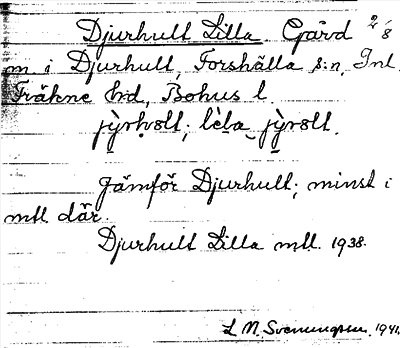 Djurhult Lilla Gård 2/8
m i Djurhult, Forshälla s:n, Inl.
Fräkne hd, Bohus l.
jýrhɷlt; lè̱ta jýrɷlt.
Jämför Djurhult; minst i
mtl. där.
Djurhult Lilla mtl. 1938.
L M. Svenningson. 1941.